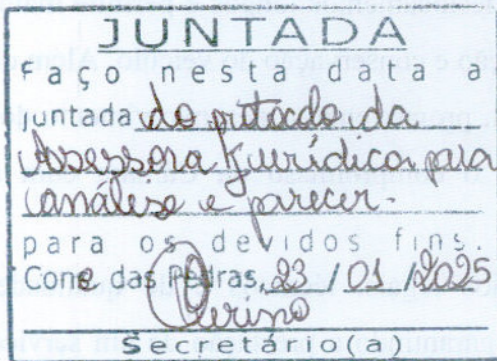 JUNTADA
Faço nesta data a
juntada do protocolo da
Assessora Jurídica para
análise e parecer.
para os devidos fins.
Cone das Pedras, 23 / 01 /2025
Secretário(a)